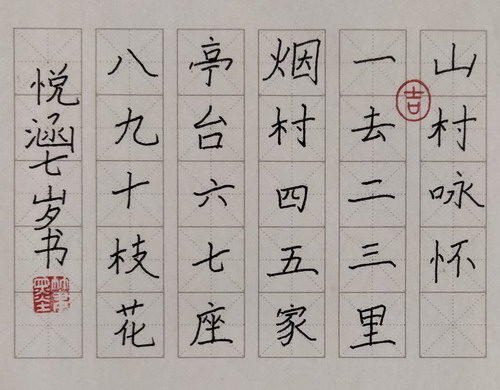 山村咏怀
一去二三里
烟村四五家
亭台六七座
八九十枝花
悦涵七岁书
吉